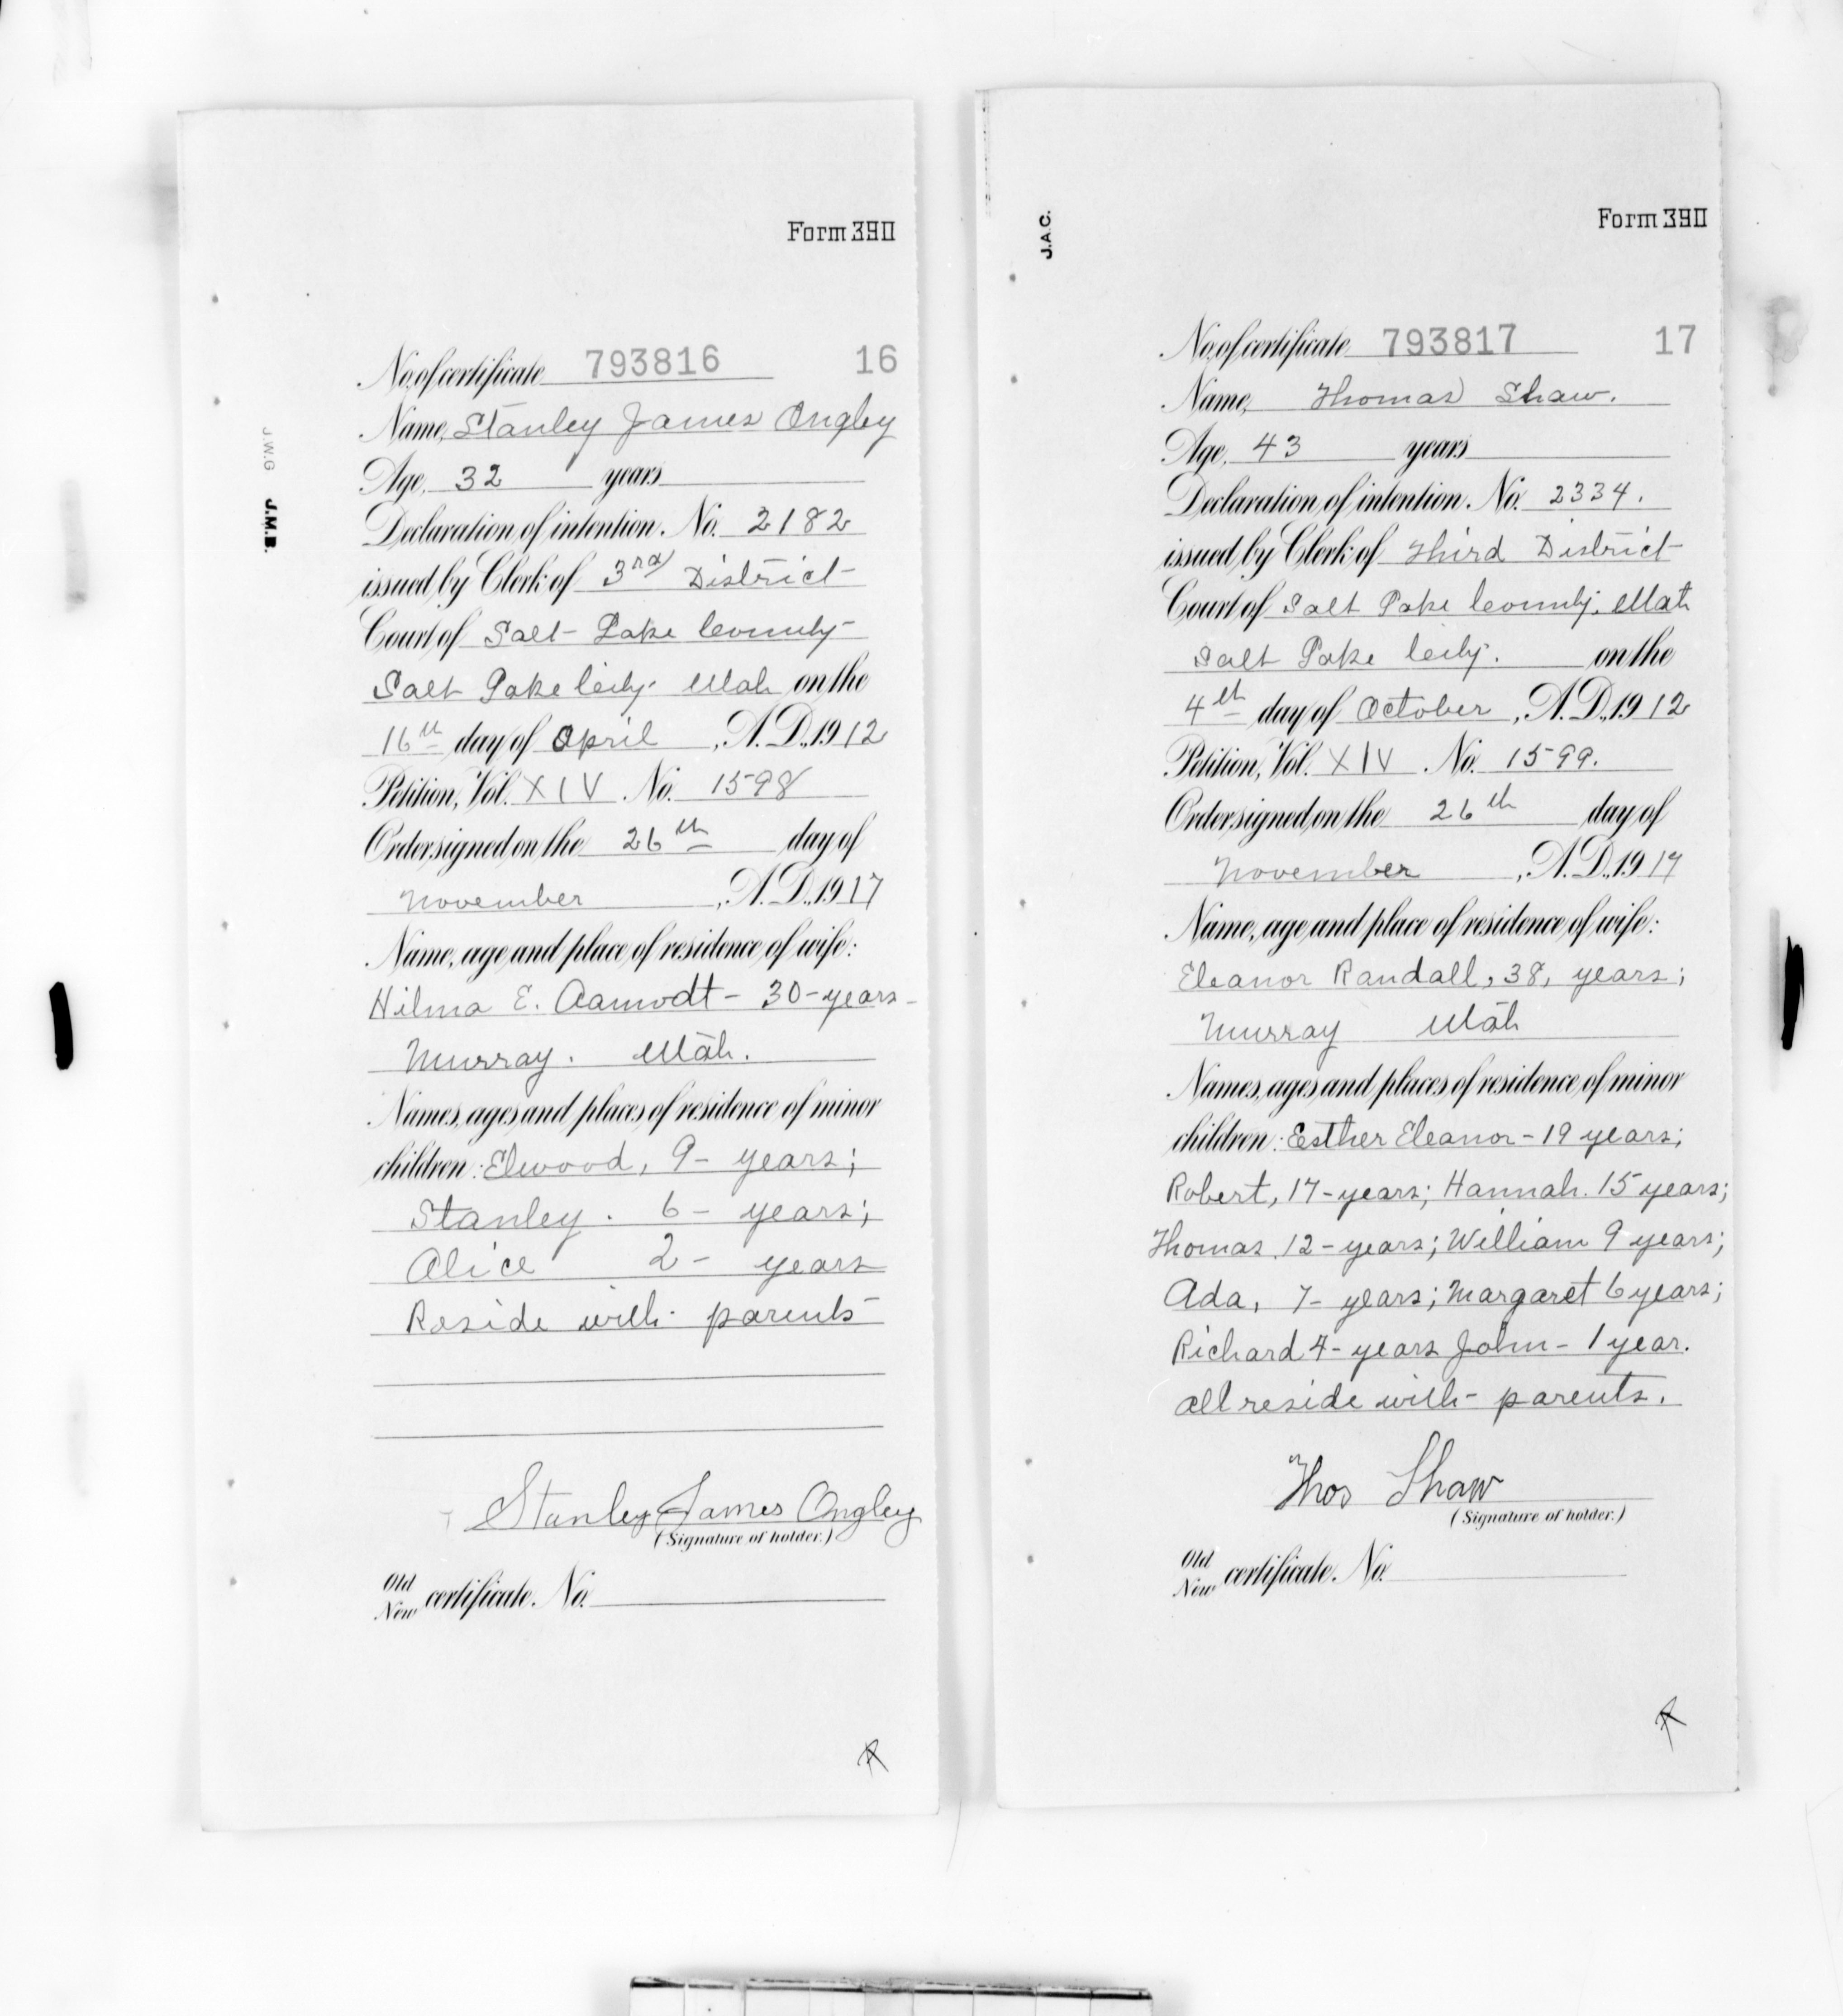 Form 390
No. of certificate 793816 16
Name, Stanley James Ongley
Age, 32 years
Declaration of intention. No. 2182
issued by Clerk of 3rd District
Court of Salt Lake County
Salt Lake City. Utah on the
16th day of April, A.D., 1912
Petition, Vol. XIV No. 1598
Order signed on the 26th day of
November, A.D., 1917
Name, age and place of residence of wife:
Hilma E. Aamodt - 30 - years -
Murray. Utah.
Names, ages and places of residence of minor
children: Elwood, 9 - years;
Stanley. 6 - years;
Alice 2 - years
Reside with parents
Stanley James Ongley
(Signature of holder.)
Old
New certificate. No.
J.W.G J.M.B.
Form 390
J.A.C.
No. of certificate 793817 17
Name, Thomas Shaw.
Age, 43 years
Declaration of intention. No. 2334.
issued by Clerk of Third District
Court of Salt Lake County, Utah
Salt Lake City. on the
4th day of October, A.D., 1912
Petition, Vol. XIV No. 1599.
Order signed on the 26th day of
November, A.D., 1917
Name, age and place of residence of wife:
Eleanor Randall, 38, years;
Murray Utah
Names, ages and places of residence of minor
children: Esther Eleanor - 19 years;
Robert, 17 - years; Hannah. 15 years;
Thomas 12 - years; William 9 years;
Ada, 7 - years; Margaret 6 years;
Richard 4 - years John - 1 year.
all reside with - parents.
Thos Shaw
(Signature of holder.)
Old
New certificate. No.